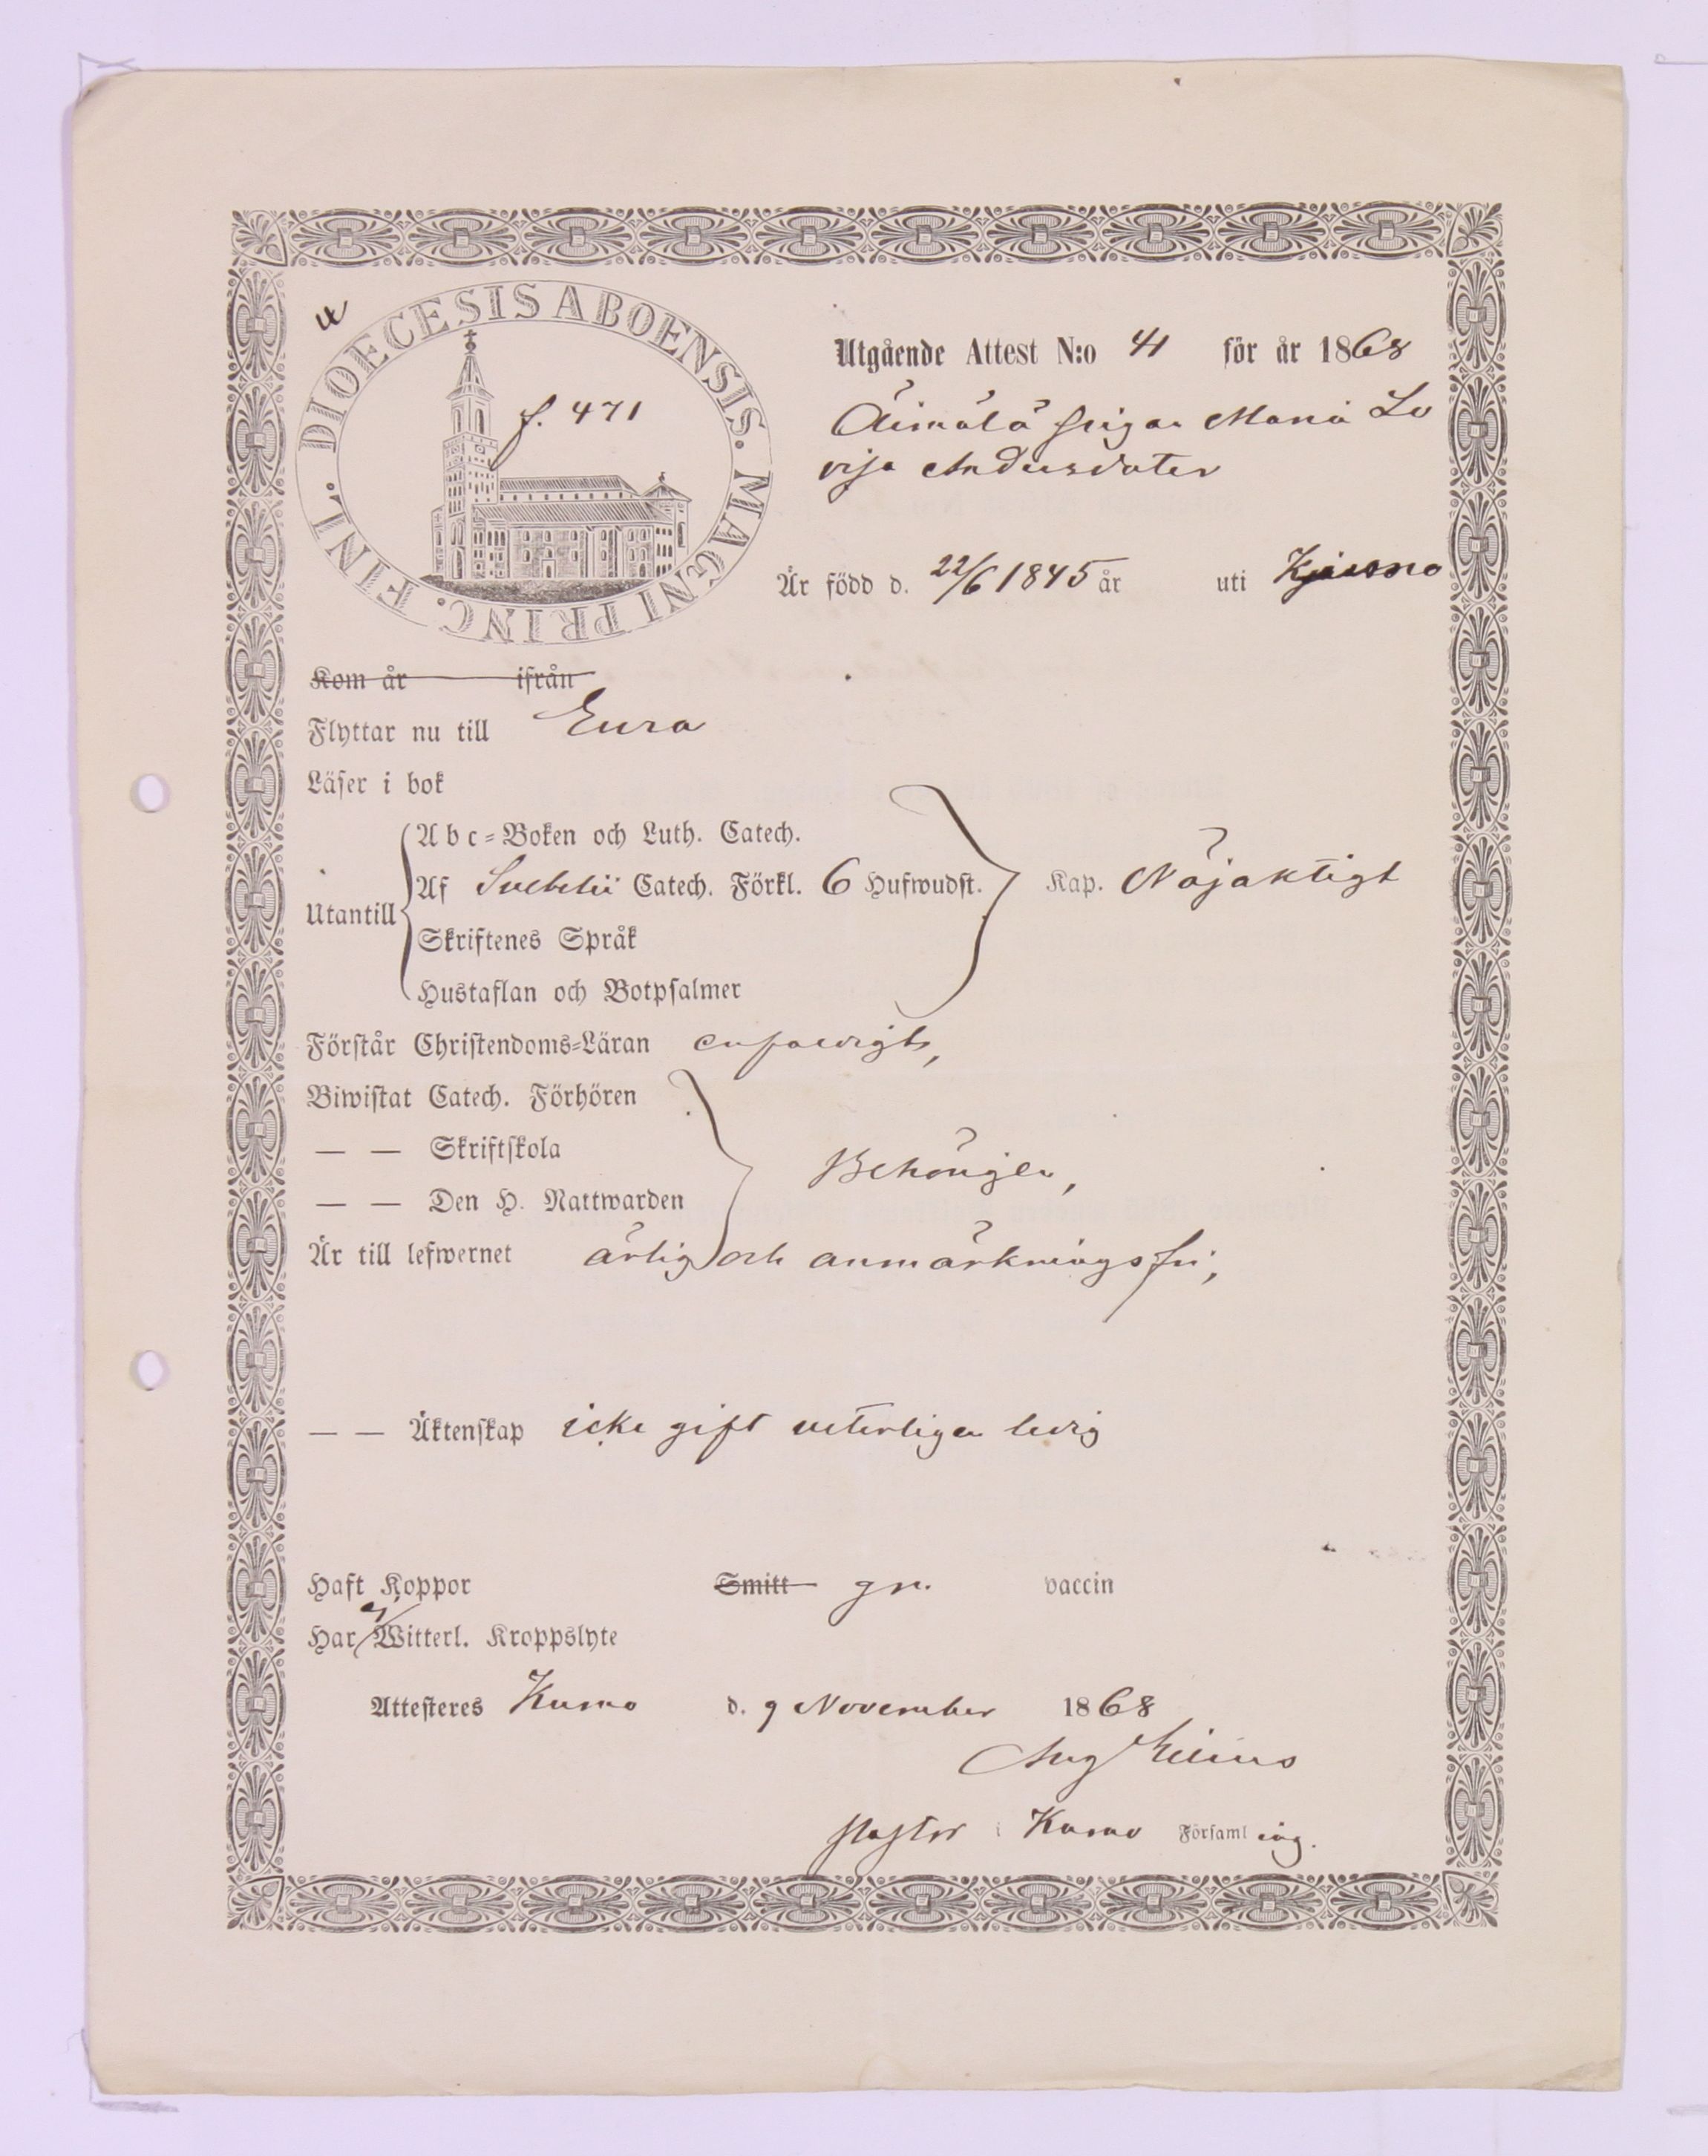 DIOECESIS ABOENSIS. MAGNI PRINC. FINL.
f. 471
Utgående Attest N:o 41 för år 1868
Äimälä pigan Maria Lo
visa Andersdoter
Är född d. 22/6 1845 år uti
Kom år ifrån
Flyttar nu till Eura
Läser i bok
Utantill
Abc-Boken och Luth. Catech.
Af Svebelii Catech. Förkl. 6 Hufwudst. Kap. Nöjaktigt
Skriftenes Språk
Hustaflan och Botpsalmer
Förstår Christendoms-Läran enfaldigt,
Biwistat Catech. Förhören
— — Skriftskola
— — Den H. Nattwarden
Behörigen,
Är till lefwernet ärlig och anmärkningsfri,
— — Äktenskap icke gift veterligen ledig
Haft Koppor Smitt gn. vaccin
Har ej Witterl. Kroppslyte
Attesteres Kumo d. 9 November 1868
Aug
Pastor i Kumo Församling.